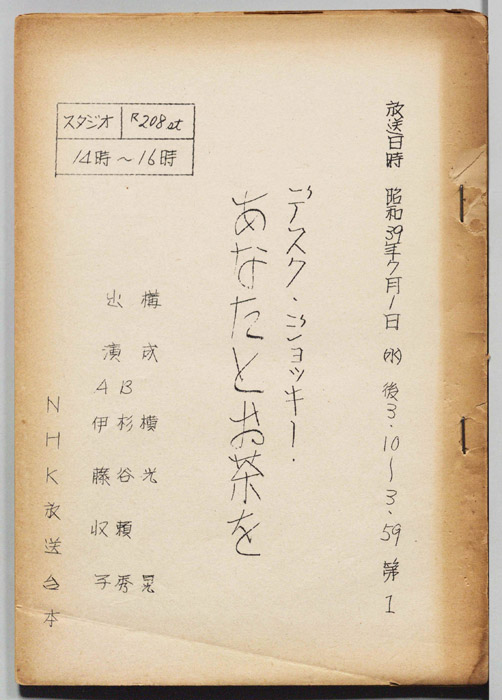 放送日時 昭和39年7月1日 (水) 後3・10〜3・59 第1
デスク・ジョッキー・
あなたとお茶を
スタジオ R208st
14時〜16時
構成 横光 晃
出演
B 杉谷 頼秀
A 伊藤 収子
NHK放送台本